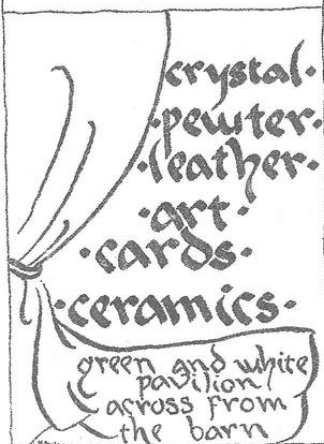 crystal·
·pewter·
·leather·
·art·
·cards·
·ceramics·
green and white
pavilion
across from
the barn